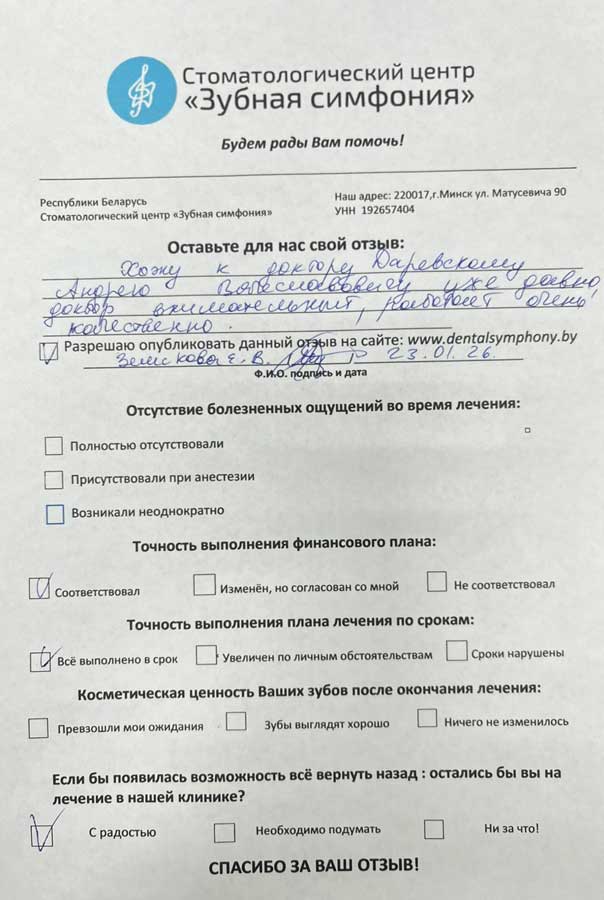 Стоматологический центр
«Зубная симфония»
Будем рады Вам помочь!
Республики Беларусь
Стоматологический центр «Зубная симфония»
Наш адрес: 220017,г.Минск ул. Матусевича 90
УНН 192657404
Оставьте для нас свой отзыв:
Хожу к доктору Даревскому
Андрею Вячеславовичу уже давно,
доктор внимательный, работает очень
качественно.
Разрешаю опубликовать данный отзыв на сайте: www.dentalsymphony.by
Е. В. 23.01.26.
Ф.И.О. подпись и дата
Отсутствие болезненных ощущений во время лечения:
Полностью отсутствовали
Присутствовали при анестезии
Возникали неоднократно
Точность выполнения финансового плана:
Соответствовал Изменён, но согласован со мной Не соответствовал
Точность выполнения плана лечения по срокам:
Всё выполнено в срок Увеличен по личным обстоятельствам Сроки нарушены
Косметическая ценность Ваших зубов после окончания лечения:
Превзошли мои ожидания Зубы выглядят хорошо Ничего не изменилось
Если бы появилась возможность всё вернуть назад : остались бы вы на
лечение в нашей клинике?
С радостью Необходимо подумать Ни за что!
СПАСИБО ЗА ВАШ ОТЗЫВ!